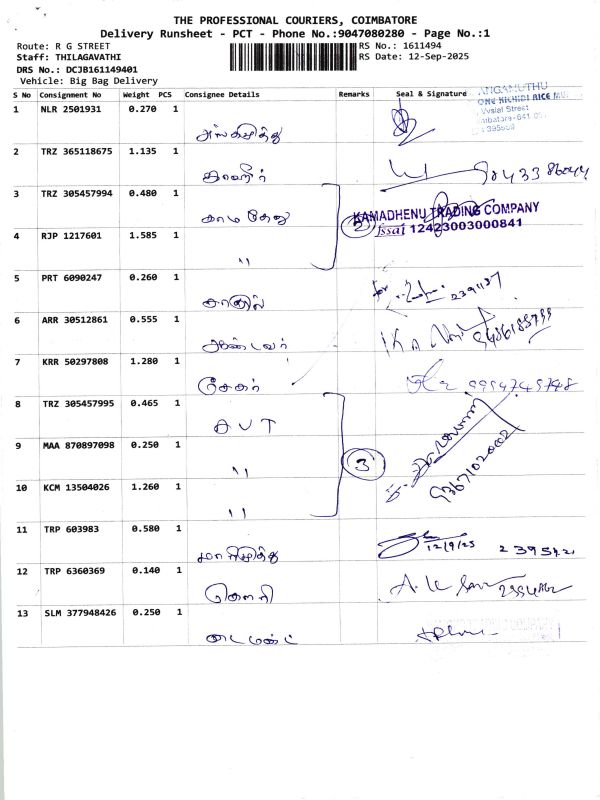 THE PROFESSIONAL COURIERS, COIMBATORE
Delivery Runsheet - PCT - Phone No.:9047080280 - Page No.:1
Route: R G STREET
Staff: THILAGAVATHI
DRS No.: DCJB161149401
Vehicle: Big Bag Delivery
RS No.: 1611494
RS Date: 12-Sep-2025
S No Consignment No Weight PCS Consignee Details Remarks Seal & Signature
1 NLR 2501931 0.270 1
Street
2 TRZ 365118675 1.135 1
3 TRZ 305457994 0.480 1 காமதேனு
KAMADHENU TRADING COMPANY
fssai 12423003000841
4 RJP 1217601 1.585 1 "
5 PRT 6090247 0.260 1
2391137
6 ARR 30512861 0.555 1
7 KRR 50297808 1.280 1 சேகர்
8 TRZ 305457995 0.465 1 AVT
9 MAA 870897098 0.250 1 "
3
10 KCM 13504026 1.260 1 "
11 TRP 603983 0.580 1 மாரிமுத்து
12/9/25
12 TRP 6360369 0.140 1 கௌரி
13 SLM 377948426 0.250 1 டைமண்ட்